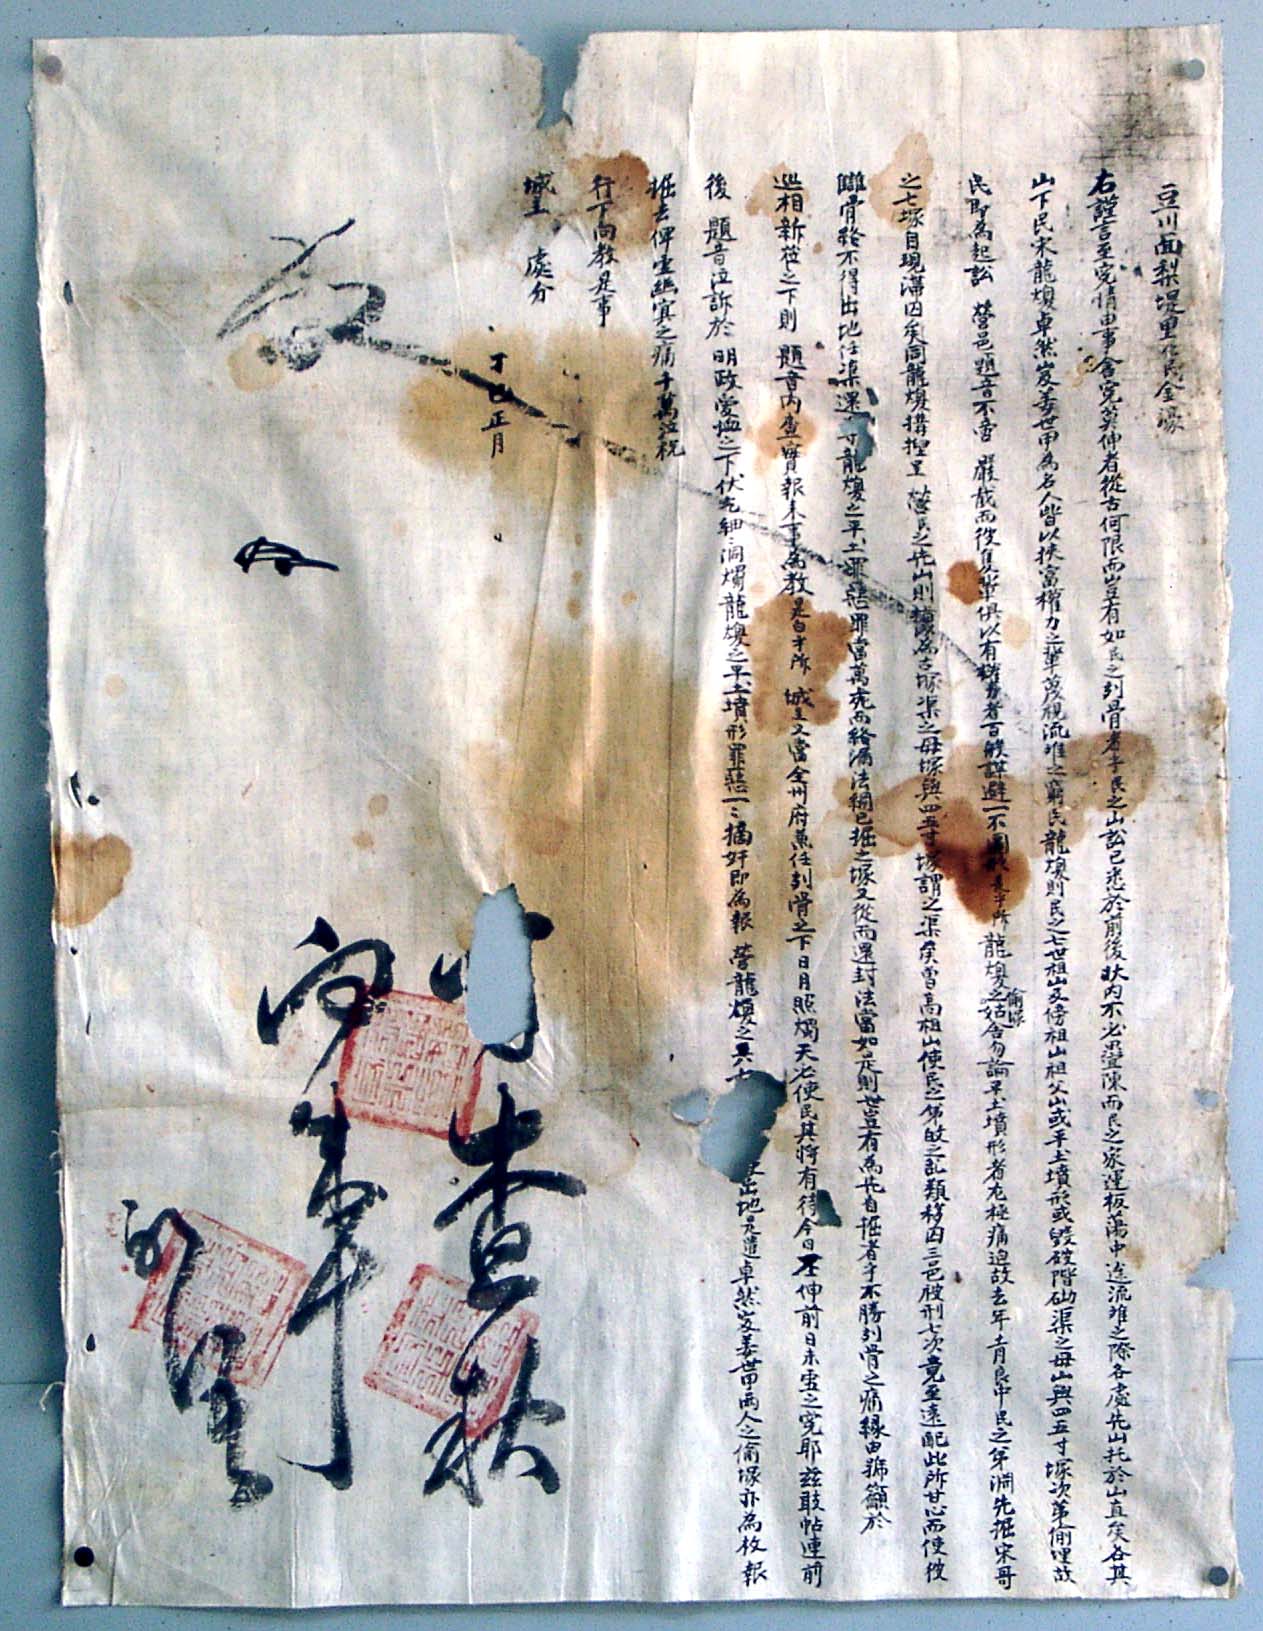 豆川面梨堤里化民金濠
右謹言至冤情由事含冤莫伸者從古何限而豈有如民之刻骨者乎民之山訟已悉於前後狀內不必疊陳而民之家運板蕩中途流離之際各處先山托於山直矣各其
山下民宋龍煥卓然岌姜世甲為名人皆以挾富權力之輩蔑視流離之窮民龍煥則民之七世祖山及傍祖山祖父山或平土墳形或毀破階砌渠之母山與四五寸塚次第偷埋故
民即為起訟 營邑題音不啻 嚴截而彼隻輩俱以有權勢者百般謀避一不圖 是乎所 龍煥之偷塚姑舍勿論平土墳形者尤極痛迫故去年 月良中民之弟澗先掘宋哥
之七塚自現滿囚矣同龍煥搆捏呈 營民之先山則 為古塚渠之母塚與四五寸塚謂之渠矣曾高祖山使民之弟 之乱類移囚三邑股刑七次竟至遠配此所甘心而使彼
雖骨骼不得出地任渠還 寸龍煥之平土罪惡罪當萬 而終漏法網已掘之塚又從而還封法當如是則世豈有為先自掘者乎不勝刻骨之痛緣由號籲於
巡相新莅之下則 題音內查實報來事為教是白乎所 城主又當全州府兼任刻骨之下日月照燭天必使民其將有待今日 伸前日未雪之冤耶茲敢帖連前
後 題音泣訴於 明政愛恤之下伏乞細細洞燭龍煥之平土墳形罪惡一一摘奸即為報 營龍煥之 七 出地是遣卓然岌姜世甲兩人之偷塚亦為枚報
掘去俾雪幽冥之痛千萬泣祝
行下向教是事
城主 處分
丁巳正月
查
向事